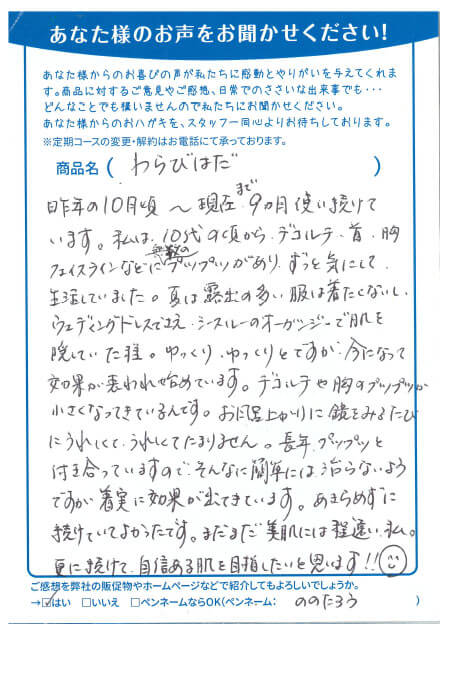 あなた様のお声をお聞かせください!
あなた様からのお喜びの声が私たちに感動とやりがいを与えてくれま
す。商品に対するご意見やご感想、日常でのささいな出来事でも・・・
どんなことでも構いませんので私たちにお聞かせください。
あなた様からのおハガキを、スタッフ一同心よりお待ちしております。
※定期コースの変更・解約はお電話にて承っております。
商品名( わらびはだ )
昨年の10月頃〜現在まで9ヵ月使い続けて
います。私は、10代の頃から、デコルテ、首、胸
フェイスラインなどに無数のプツプツがあり、ずっと気にして
生活していました。夏は露出の多い服は着たくないし、
ウェディングドレスでさえ、シースルーのオーガンジーで肌を
隠していた程。ゆっくり、ゆっくりとですが、今になって
効果が表われ始めています。デコルテや胸のプツプツが
小さくなってきているんです。お風呂上がりに鏡をみるたび
にうれしくて、うれしくてたまりません。長年、プツプツと
付き合っていますので、そんなに簡単には治らないよう
ですが着実に効果が出てきています。あきらめずに
続けていてよかったです。まだまだ美肌には程遠い私。
更に続けて、自信ある肌を目指したいと思います!!
ご感想を弊社の販促物やホームページなどで紹介してもよろしいでしょうか。
→☑はい □いいえ □ペンネームならOK(ペンネーム: ののたろう )